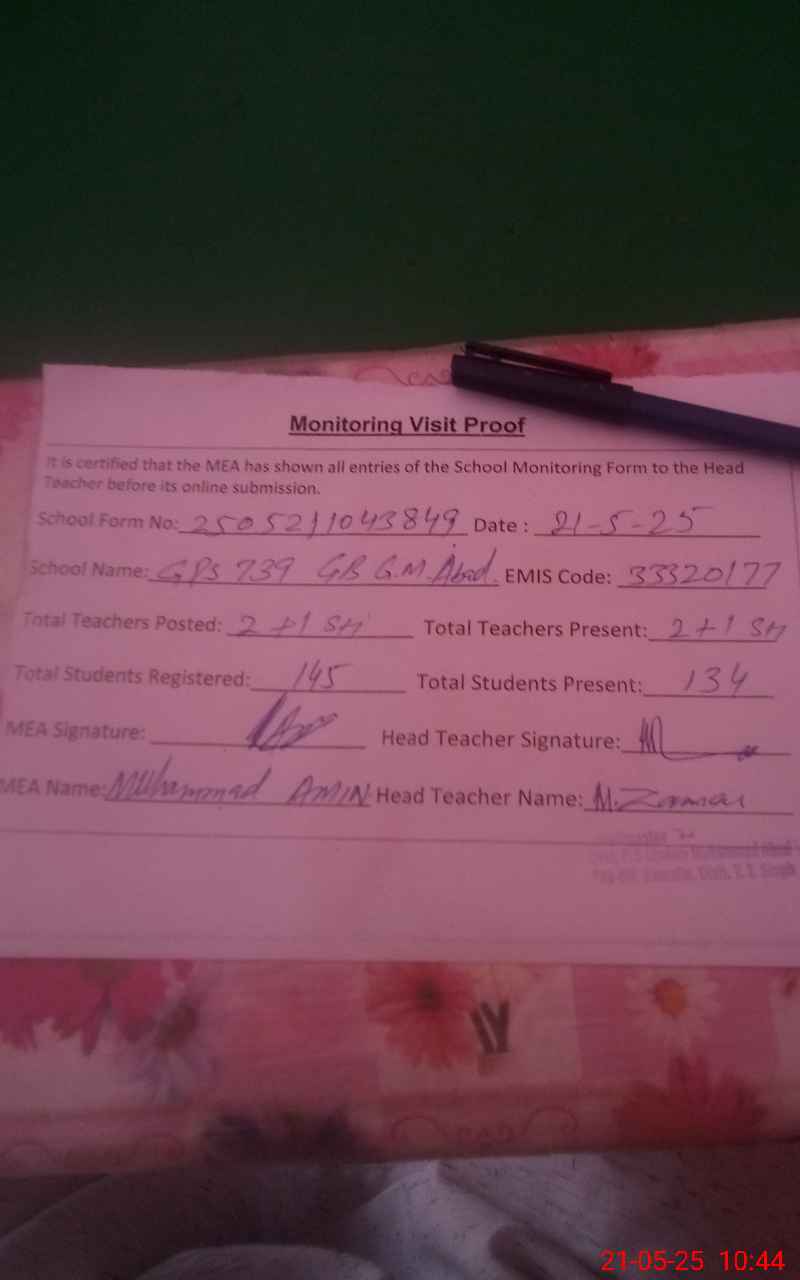 Monitoring Visit Proof
It is certified that the MEA has shown all entries of the School Monitoring Form to the Head
Teacher before its online submission.
School Form No: 2505211043849 Date : 21-5-25
School Name: GPS 739 GB G.M. Abad. EMIS Code: 33320177
Total Teachers Posted: 2 + 1 SH Total Teachers Present: 2 + 1 SH
Total Students Registered: 145 Total Students Present: 134
MEA Signature: Head Teacher Signature:
MEA Name: Muhammad AMIN Head Teacher Name: M.
21-05-25 10:44